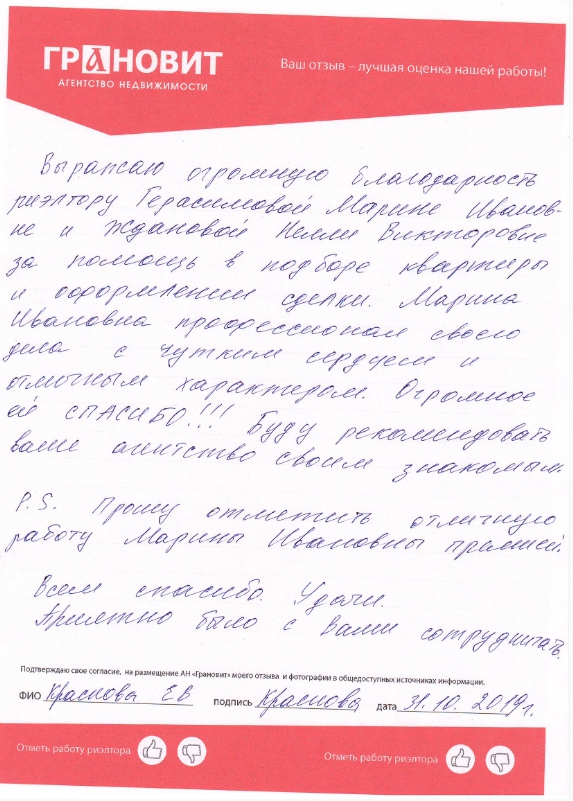 ГРАНОВИТ
АГЕНТСТВО НЕДВИЖИМОСТИ
Ваш отзыв – лучшая оценка нашей работы!
Выражаю огромную благодарность
риэлтору Герасимовой Марине Иванов-
не и Ждановой Нелли Викторовне
за помощь в подборе квартиры
и оформлении сделки. Марина
Ивановна профессионал своего
дела с чутким сердцем и
отличным характером. Огромное
ей СПАСИБО!!! Буду рекомендовать
ваше агентство своим знакомым.
P.S. Прошу отметить отличную
работу Марины Ивановны премией.
Всем спасибо. Удачи.
Приятно было с Вами сотрудничать.
Подтверждаю свое согласие, на размещение АН «Грановит» моего отзыва и фотографии в общедоступных источниках информации.
ФИО Краснова ЕВ подпись Краснова дата 31.10.2019г.
Отметь работу риэлтора Отметь работу риэлтора